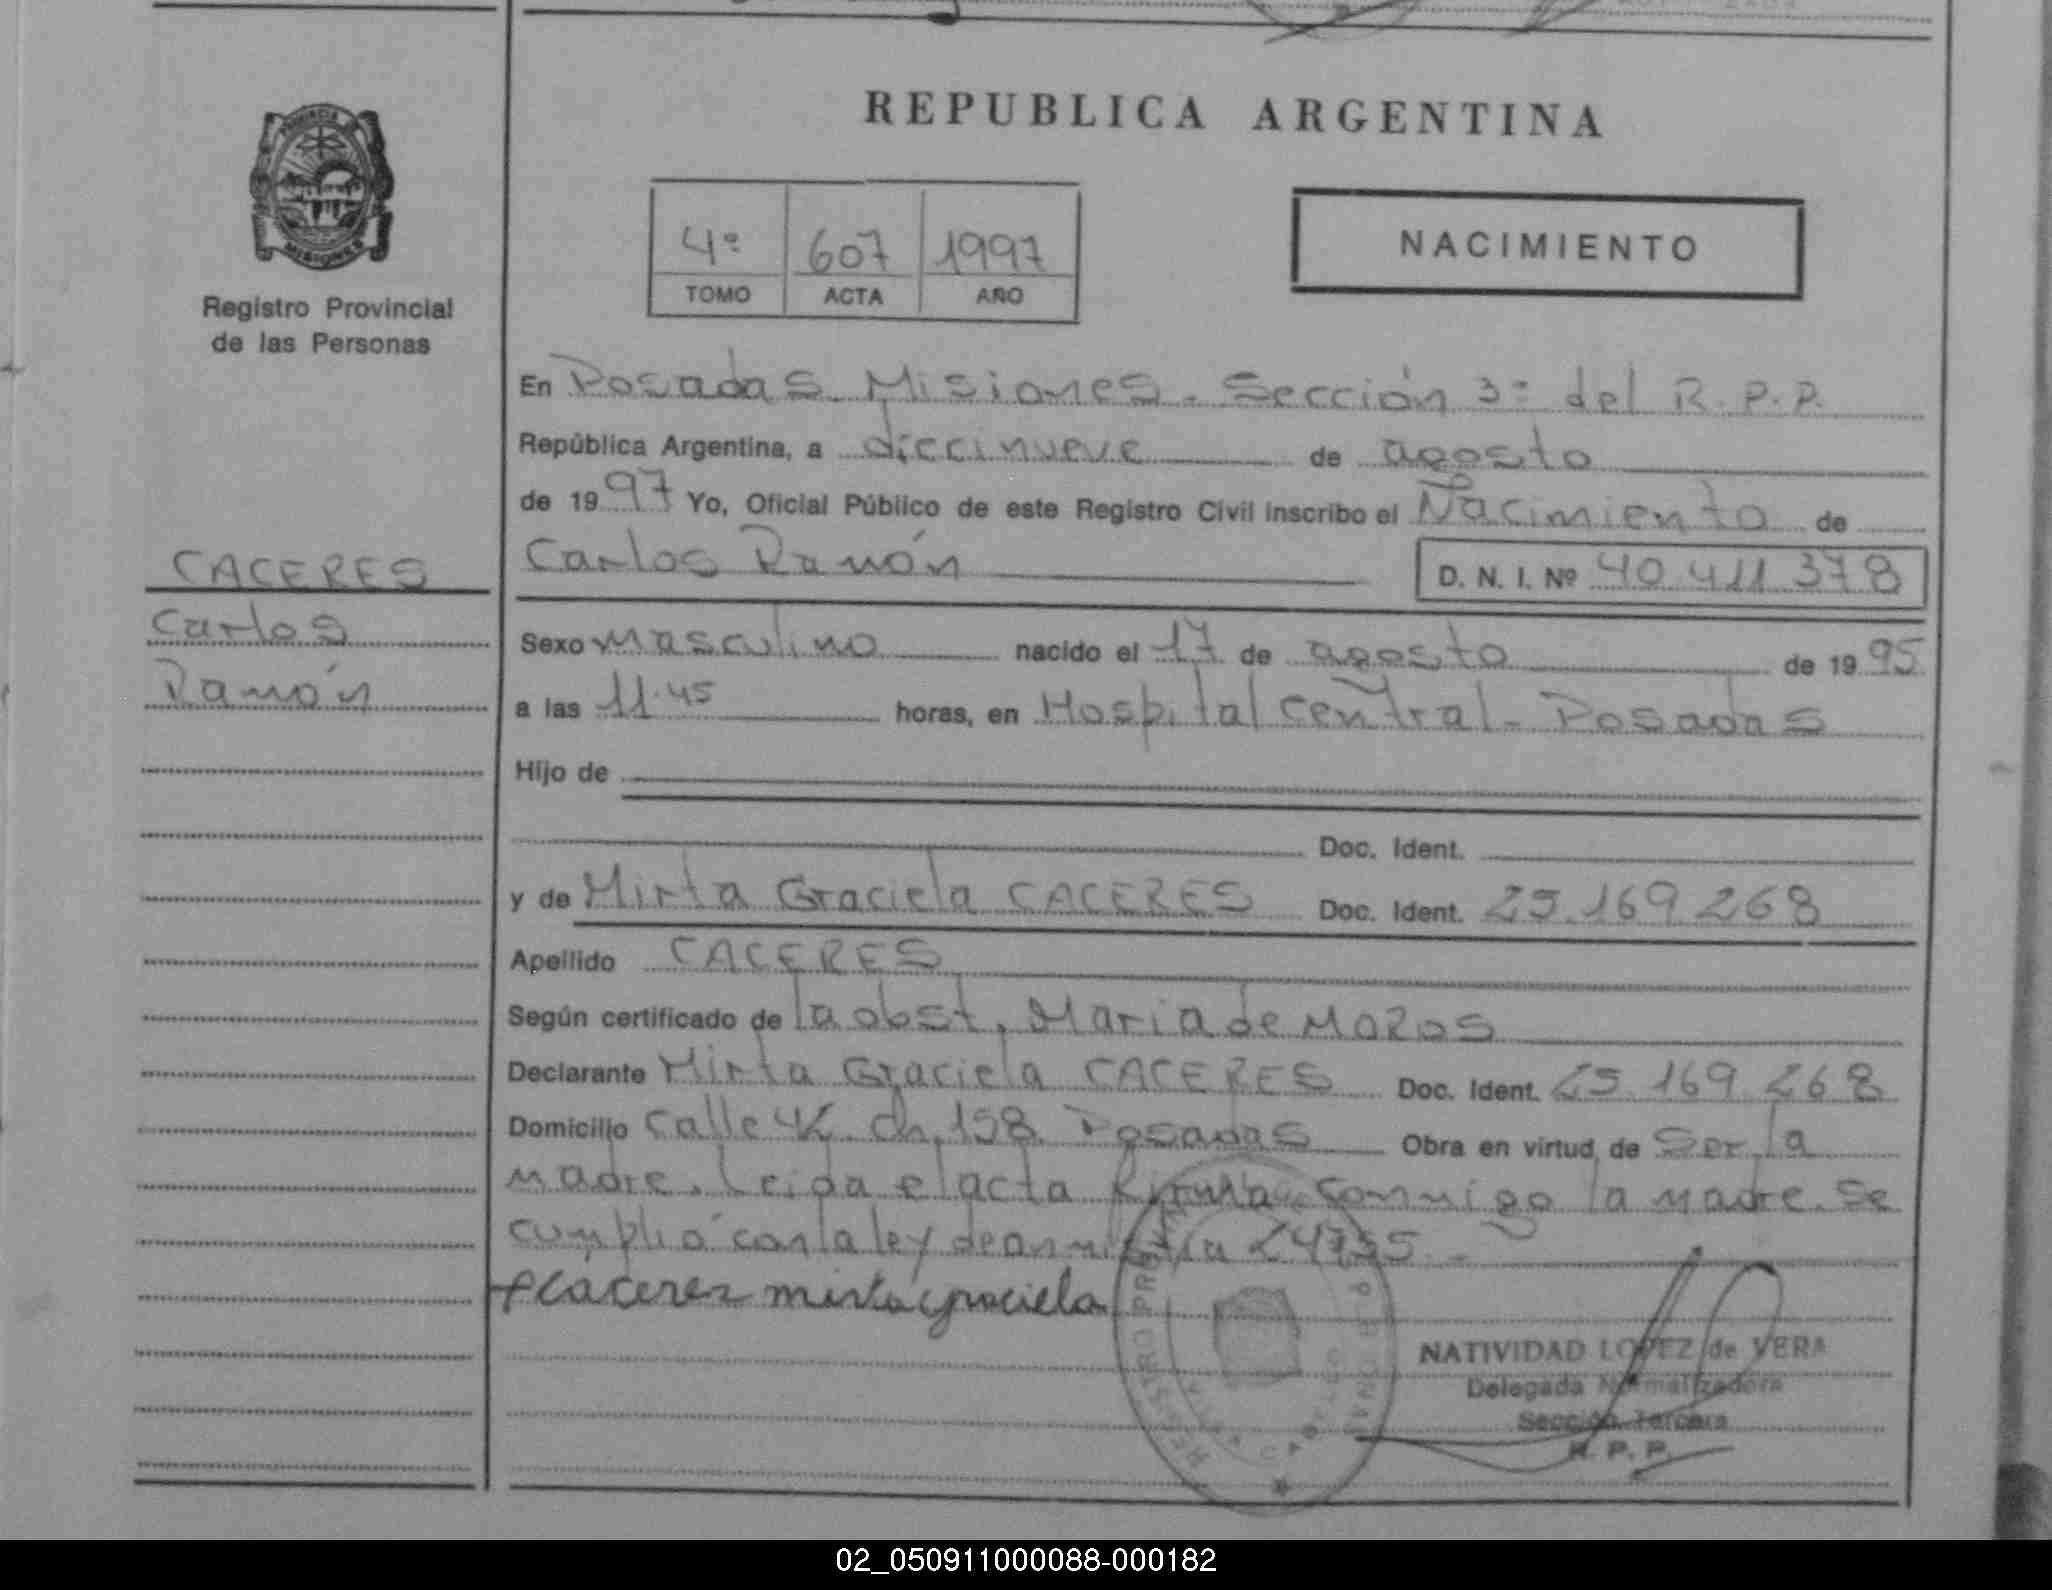 REPUBLICA ARGENTINA
PROVINCIA DE
MISIONES
Registro Provincial
de las Personas
4º 607 1997
TOMO ACTA AÑO
NACIMIENTO
CACERES
Carlos
Ramón
En Posadas Misiones. Sección 3º del R.P.P.
República Argentina, a diecinueve de agosto
de 1997 Yo, Oficial Público de este Registro Civil inscribo el Nacimiento de
Carlos Ramón D. N. I. Nº 40.411.378
Sexo masculino nacido el 17 de agosto de 1995
a las 11.45 horas, en Hospital Central - Posadas
Hijo de
Doc. Ident.
y de Mirta Graciela CACERES Doc. Ident. 25.169.268
Apellido CACERES
Según certificado de la obst. Maria de MOZOS
Declarante Mirta Graciela CACERES Doc. Ident. 25.169.268
Domicilio Calle 4K. Ch. 158. Posadas Obra en virtud de Ser la
madre. Leida el acta firma conmigo la madre. Se
cumplió con la ley de amnistia 24755.-
Cacerez mirta graciela
NATIVIDAD LOPEZ de VERA
Delegada Normalizadora
Sección Tercera
R. P. P.
02_050911000088-000182